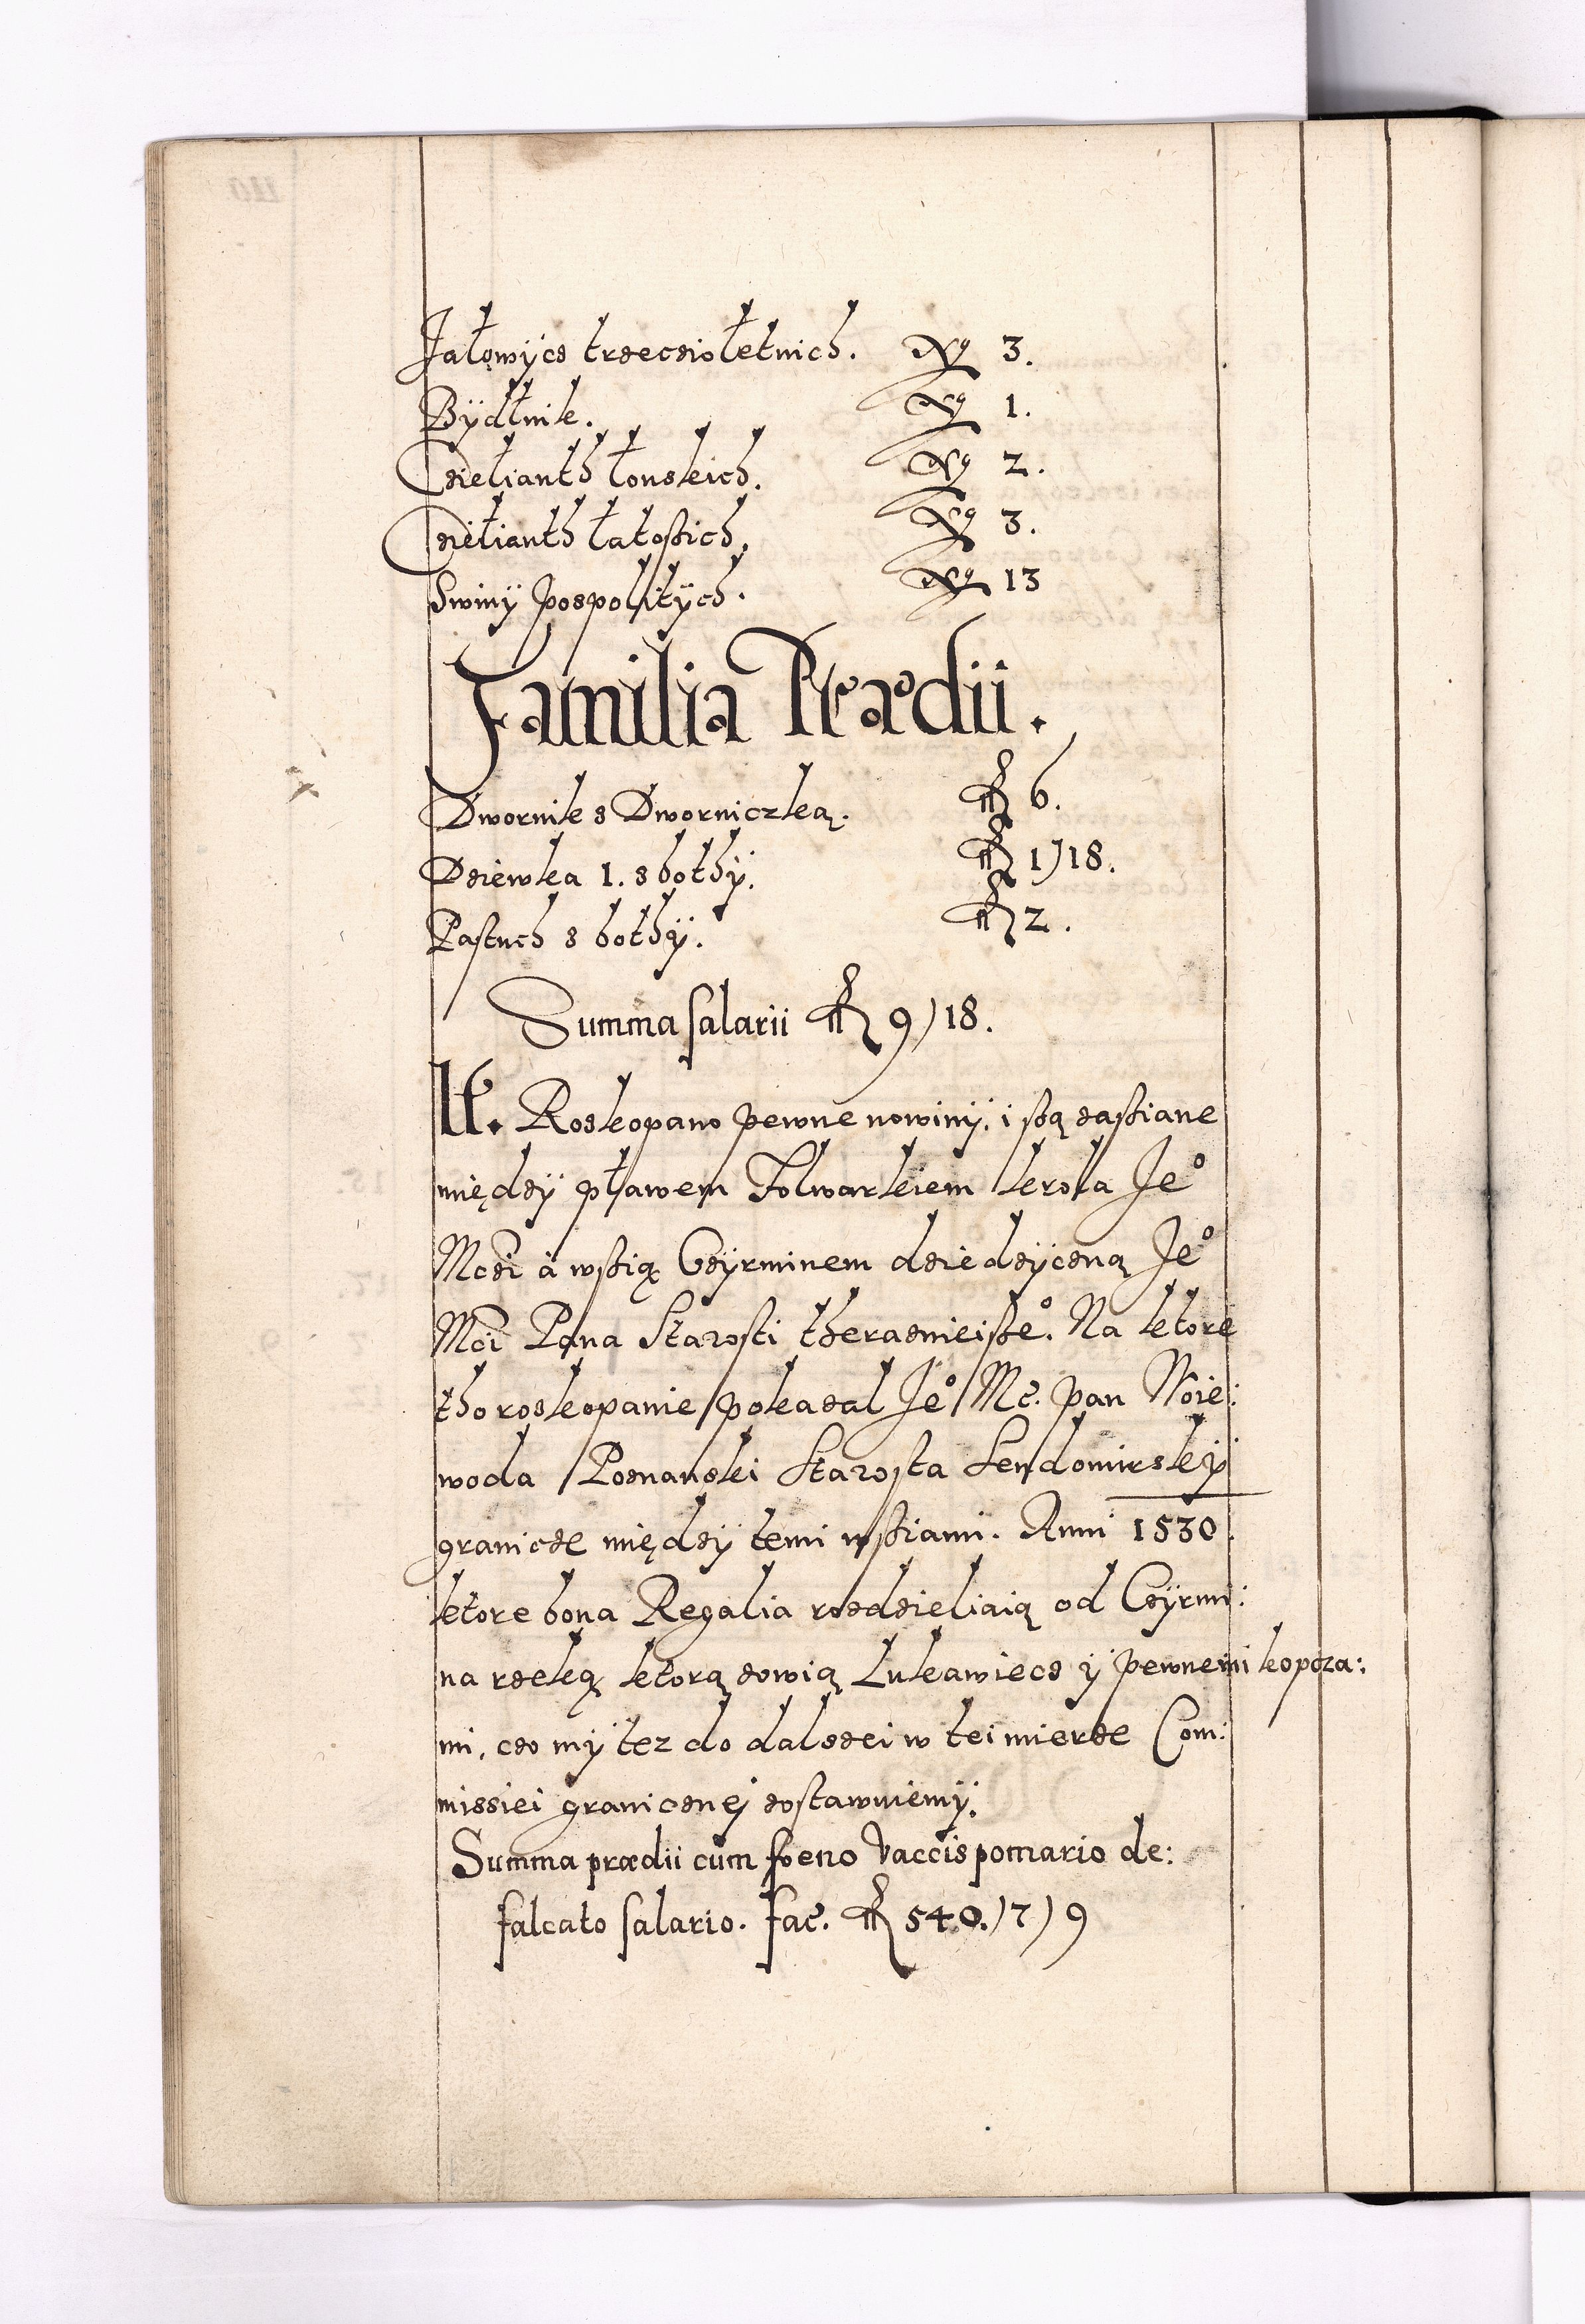 Jałowycz trzeczioletnich. No 3.
Bydłnik. No 1.
Czielianth łonskich. No 2.
Czielianth latoßich. No 3.
Swiny pospolitych. No 13
Familia Prædii.
Dwornik z Dworniczką. fl 6.
Dziewka 1. z bothy. fl 1)18.
Pastuch z bothy. fl 2.
Summa salarii fl 9)18.
It. Roskopano pewne nowiny, i są zaßiane
między pławem Folwarkiem krola Jeº
Mczi à wßią Czyrminem dziedzyczną Jeº
Mci Pana Starosti theraznieißeº. Na ktore
tho roskopanie pokazal Jeº Mc. pan Woie:
woda Poznanski Starosta Sendomirsky
granicze między temi wßiami. Anni 1530.
ktore bona Regalia rozdzieliaią od Czyrmi:
na rzeką ktorą zowią Lukawiecz y pewnemi kopcza:
mi, czo my tez do dalszei w tei mierze Com:
missiei granicznej zostawuiemy.
Summa prædii cum foeno vaccis pomario de:
falcato salario. fac. fl 540.)7)9